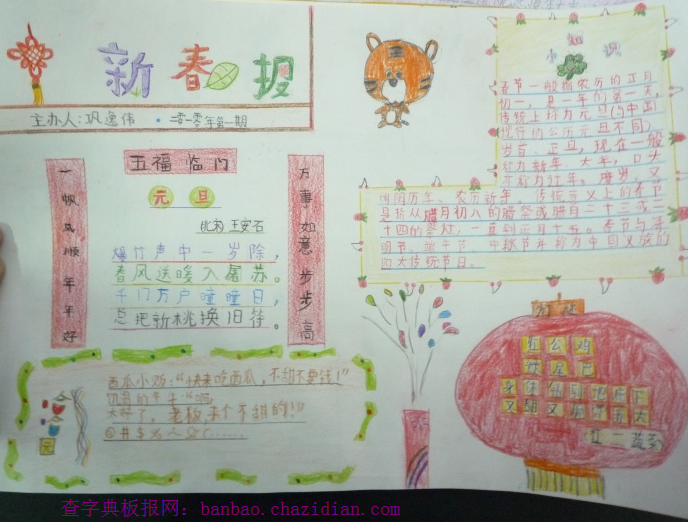 新春报
主办人:巩逸伟·二零一零年第一期
五福临门
一帆风顺年年好
万事如意步步高
元旦
北宋 王安石
爆竹声中一岁除,
春风送暖入屠苏。
千门万户曈曈日,
总把新桃换旧符。
西瓜小鸡:“快来吃西瓜,不甜不要钱!”
饥渴的牛牛:“啊,
太好了,老板来个不甜的!”
小知识
春节一般指农历的正月
初一,是一年的第一天,
传统上称为元旦(与中国
现行的公历元旦不同)、
岁首、正旦,现在一般
称为新年、大年,口头
又称为过年。
阴历年、农历新年。传统意义上的春节
是指从腊月初八的腊祭或腊月二十三或二
十四的祭灶,一直到正月十五。春节与清
明节、端午节、中秋节并称为中国汉族的
四大传统节日。
有么鸡
没尾巴
红二蔬菜
查字典板报网:banbao.chazidian.com